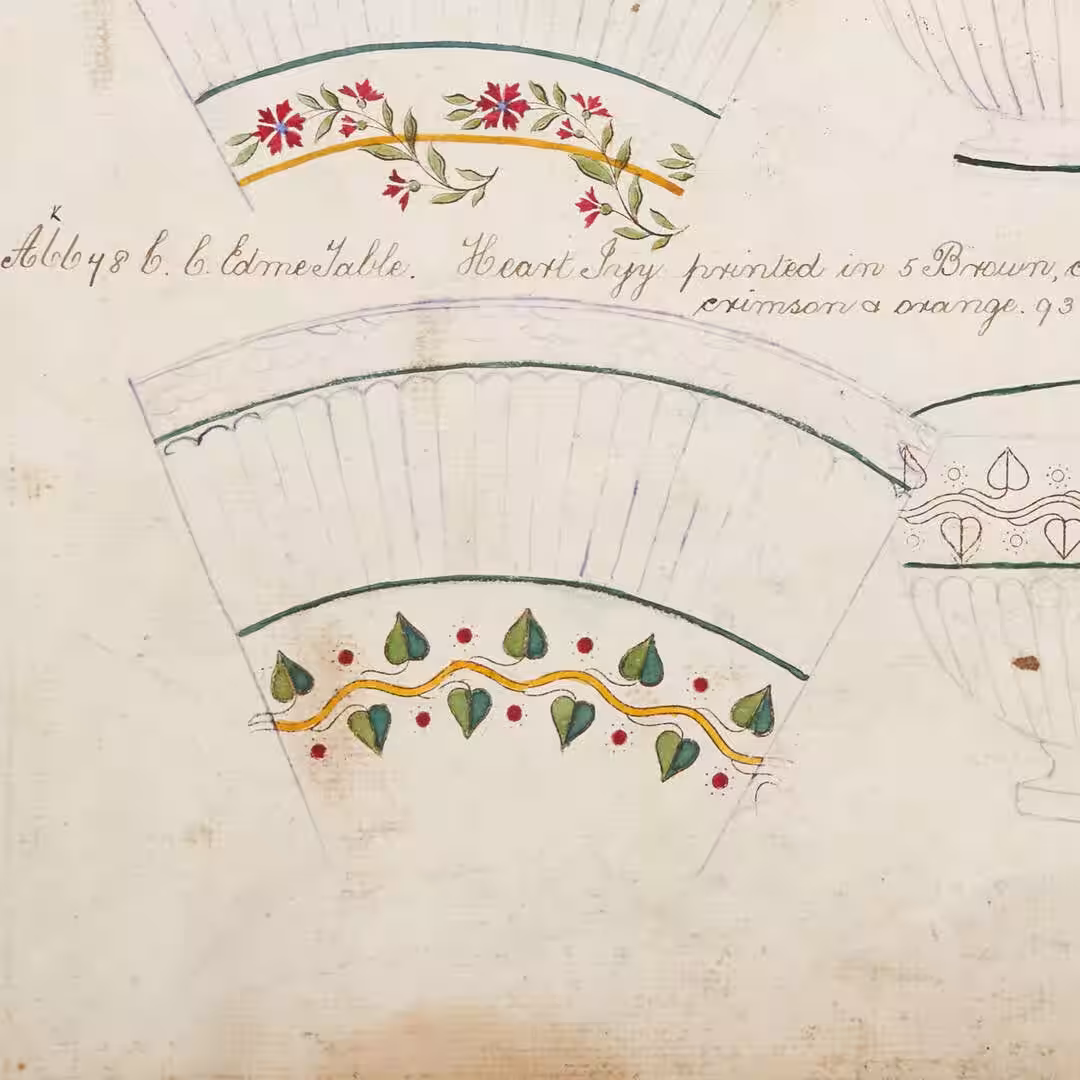 K
AL6648 C. C. Edme Table. Heart Ivy printed in 5 Brown,
crimson & orange. 93